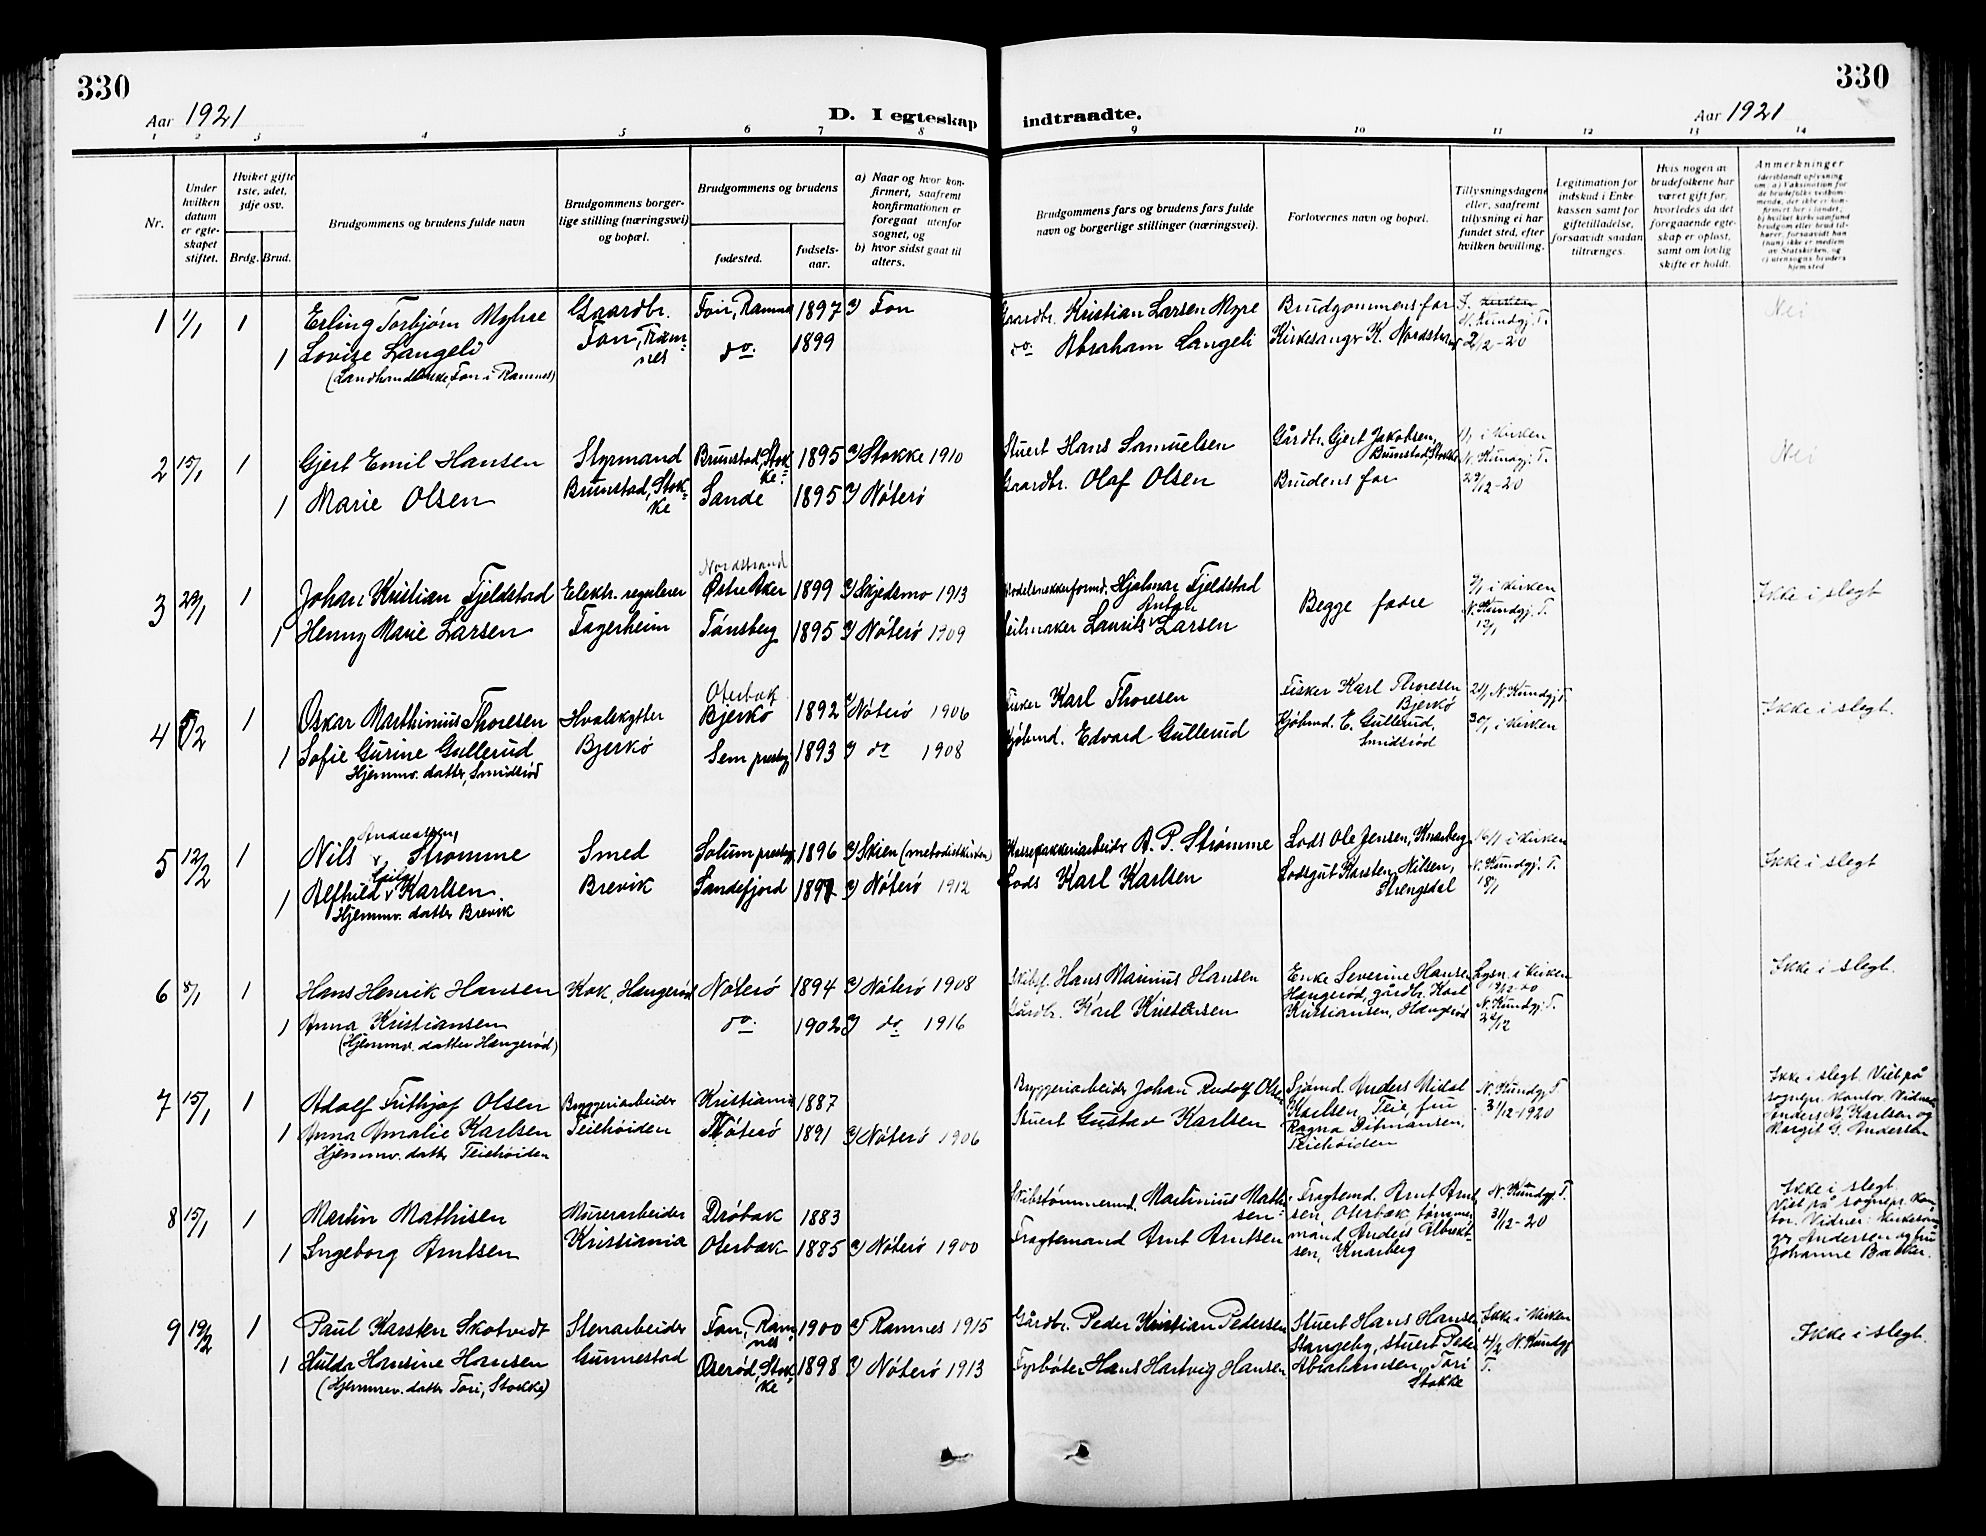 330
330
Aar 1921
D. I egteskap indtraadte.
Aar 1921
1 2 3 4 5 6 7 8 9 10 11 12 13 14
Nr.
Under hvilken datum er egteskapet stiftet.
Hviket gifte 1ste, 2det, 3dje osv.
Brdg. Brud.
Brudgommens og brudens fulde navn
Brudgommens borgerlige stilling (næringsvei) og bopæl.
Brudgommens og brudens
fødested.
fødsels-aar.
a) Naar og hvor konfirmert, saafremt konfirmationen er foregaat utenfor sognet, og
b) hvor sidst gaat til alters.
Brudgommens fars og brudens fars fulde navn og borgerlige stillinger (næringsvei).
Forlovernes navn og bopæl.
Tillysningsdagene eller, saafremt tillysning ei har fundet sted, efter hvilken bevilling.
Legitimation for indskud i Enkekassen samt for giftetilladelse, forsaavidt saadan tiltrænges.
Hvis nogen av brudefolkene har været gift før, hvorledes da det foregaaende egteskap er opløst, samt om lovlig skifte er holdt.
Anmerkninger
1 1/1 1 Erling Torbjørn Myhre Gaardbr. Fon, Ramnes 1897 Fon Gaardbr. Kristian Larsen Myre Brudgommens far
1 Lovise Langeli Fon, Ramnes do. 1899 do Abraham Langeli Kirkesanger K. Nordstrand N. Kundgj. T. 2/12-20 Nei
(Landhandlerske, Fon i Ramnes)
2 15/1 1 Gjert Emil Hansen Styrmand Brunstad, Stokke 1895 Stokke 1910 Stuert Hans Samuelsen Gårdbr. Gjert Jakobsen, Brunstad, Stokke i Kirken
1 Marie Olsen Brunstad, Stokke Sande 1895 Nøterø Gaardbr. Olaf Olsen Brudens far N. Kundgj. T. 29/12-20 Nei
3 23/1 1 Johan Kristian Fjeldstad Elektr. regulerer Nordstrand Østre Aker 1899 Skjedsmo 1913 Hjalmar Fjeldstad Begge fædre 9/1 i Kirken
1 Henny Marie Larsen Fagerheim Tønsberg 1895 Nøterø 1909 Seilmaker Laurits Anton Larsen N. Kundgj. T. 13/1 Ikke i slegt
4 1 Oskar Marthinius Thoresen Hvalskytter Oterbæk Bjerkø 1892 Nøterø 1906 Fisker Karl Thoresen Fisker Karl Thoresen Bjerkø N. Kundgj. T.
1 Sofie Gurine Gullerud Bjerkø Sem prestgj 1893 do 1908 Kjøbmd. Edvard Gullerud Kjøbmd. E. Gullerud, Smidsrød 30/1 i Kirken Ikke i slegt.
Hjemmv. datter, Smidsrød
5 12/2 1 Nils Andreassen Strømme Smed Solum prestgj 1896 Skien (metodistkirken) A. P. Strømme Lods Ole Jensen, Knarberg 16/1 i Kirken
1 Alfhild Karlsen Brevik Sandefjord 1897 Nøterø 1912 Lods Karl Karlsen Lodsgut Karsten Nilsen, Strengsdal N. Kundgj. T. 18/1 Ikke i slegt
Hjemmv. datter Brevik
6 8/1 1 Hans Henrik Hansen Kok, Hængerød Nøterø 1894 Nøterø 1908 Hans Marinius Hansen Enke Severine Hansen Hængerød, gårdbr. Karl Kristiansen, Hængerød Lysn. i Kirken
1 Anna Kristiansen do. 1902 do 1916 Gårdbr. Karl Kristensen N. Kundgj. T. Ikke i slegt.
(Hjemmv. datter Hængerød)
7 15/1 1 Adolf Frithjof Olsen Bryggeriarbeider Kristiania 1887 Bryggeriarbeider Johan Rudolf Olsen Sjømd. Anders Vidal Karlsen, Teie, fru Ragna Ditmansen, Teiehøiden N. Kundgj. T. 31/12-1920
1 Anna Amalie Karlsen Teiehøiden Nøterø 1891 Nøterø 1906 Stuert Gustav Karlsen
Hjemmv. datter Teiehøiden
Ikke i slegt. Viet på sognepr. kontor. Vidner Anders M. Karlsen og Margit G. Andersen
8 15/1 1 Martin Mathisen Murerarbeider Drøbak 1883 Skibstømmermd. Martinius Mathisen Fragtemd. Arnt Arntsen, Oterbæk, tømmermand Anders Albrektsen, Knarberg N. Kundgj. T. 31/12-20
1 Ingeborg Arntsen Kristiania Oterbæk 1885 Nøterø 1900 Fragtemand Arnt Arntsen
Ikke i slegt. Viet på sognepr. kontor. Vidner: kirkesanger Andersen og fru Johanne Bakken.
9 19/2 1 Paul Karsten Skotvedt Stenarbeider Fon, Ramnes 1900 Ramnes 1915 Gårdbr. Peder Kristian Pedersen Stuert Hans Hansen Stangeby, stuert Peder Abrahamsen, Tori Stokke Ikke i Kirken
1 Hulda Hansine Hansen Gunnestad Oserød, Stokke 1898 Nøterø 1913 Fyrbøter Hans Hartvig Hansen 4/2 N. Kundgj. T. Ikke i slegt.
(Hjemmv. datter Tori, Stokke)